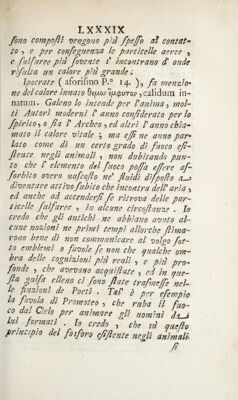 LXXXIX
sono composti vengono più spesso al contat-
to, e per conseguenza le particelle aeree,
e sulfuree più sovente s' incontrano d' onde
risulta un calore più grande.
Ipocrate (aforismo P.º 14.), fa menzio-
ne del calore innato θερμον ἔμφυτον, calidum in-
natum. Galeno lo intende per l'anima, mol-
ti Autori moderni l' anno considerato per lo
spirito, o sia l' Archeo, ed altri l'anno chia-
mato il calore vitale; ma essi ne anno par-
lato come di un certo grado di fuoco esi-
stente negli animali, non dubitando pun-
to che l' elemento del fuoco possa essere as-
sorbito ovvero nascosto ne' fluidi disposto a
diventare attivo subito che incontra dell' aria,
ed anche ad accendersi se ritrova delle par-
ticelle sulfuree, in alcune circostanze. Io
credo che gli antichi ne abbiano avuto al-
cune nozioni ne primi tempi allorche stima-
rono bene di non communicare al volgo sot-
to emblemi o favole se non che qualche om-
bra delle cognizioni più reali, e più pro-
fonde, che avevano acquistate, ed in que-
sta guisa elleno ci sono state trasmesse nel-
le finzioni de Poeti. Tal' è per esempio
la favola di Promoteo, che ruba il fuo-
co dal Cielo per animare gli uomini da
lui formati. Io credo, che sù questo
principio del fosforo esistente negli animali
si